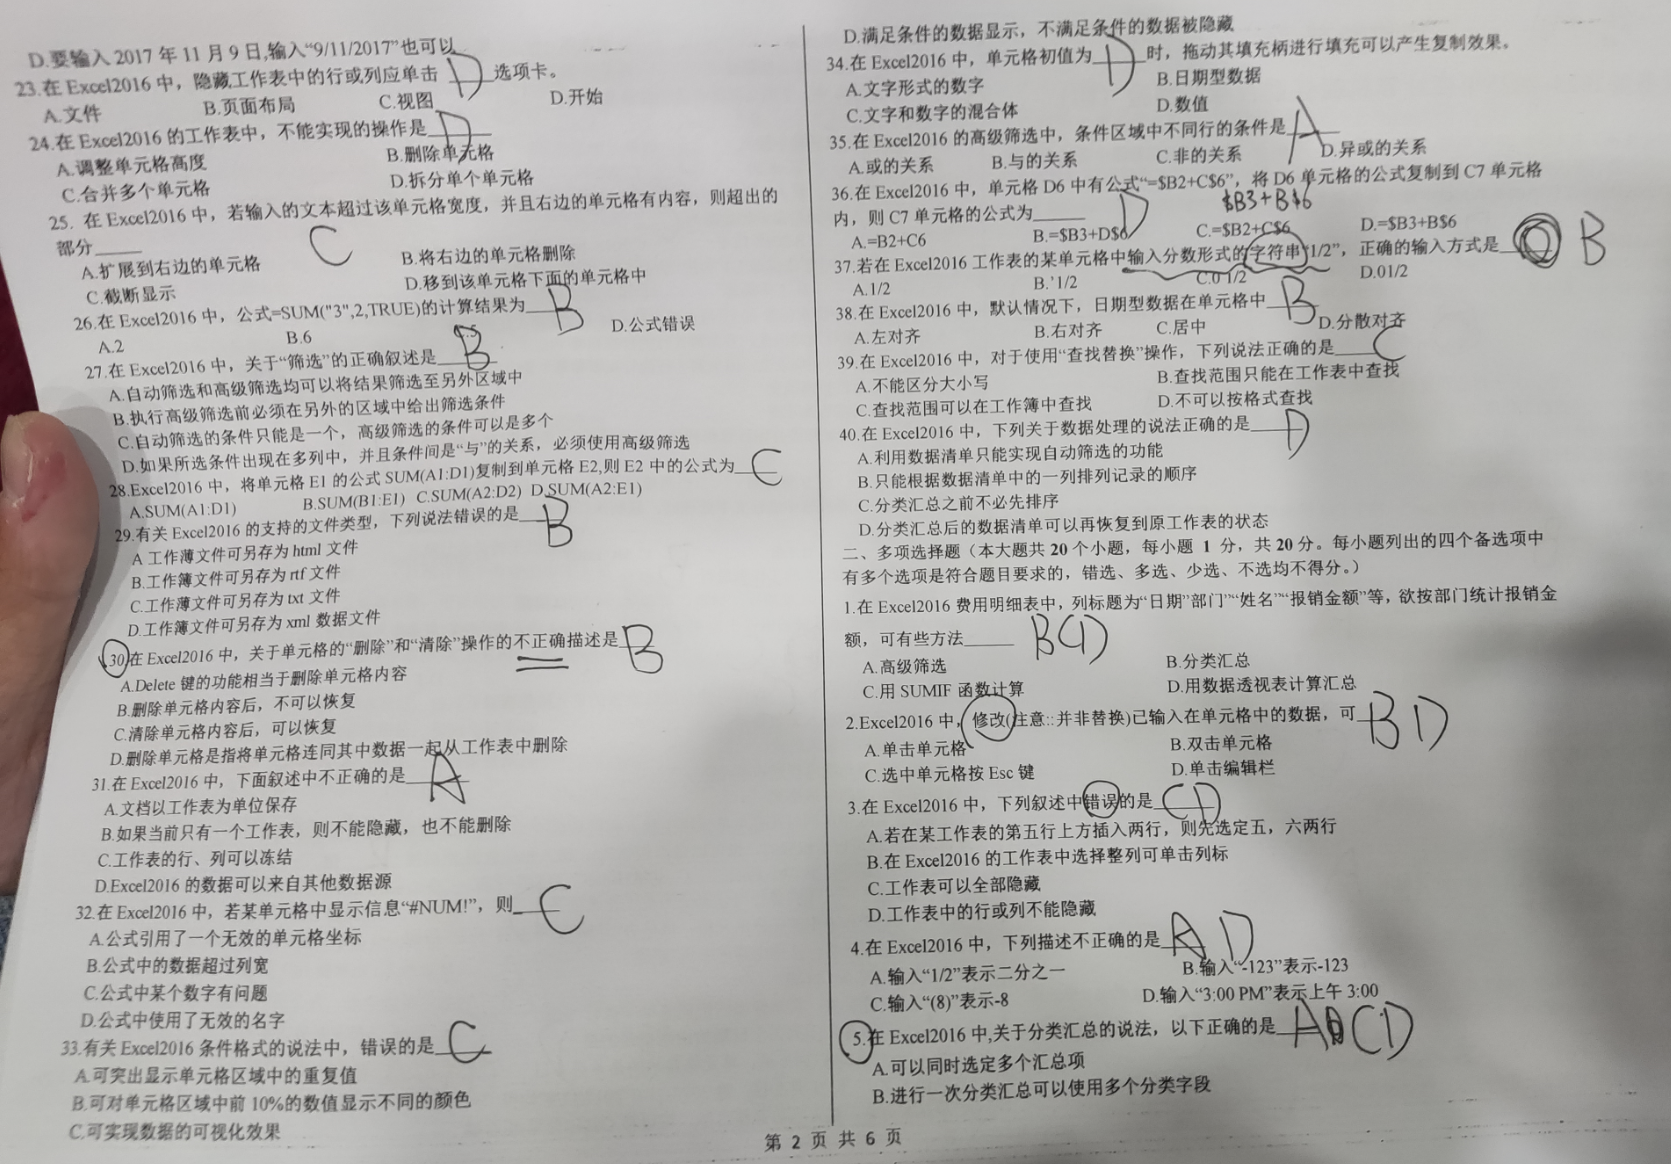 D.要输入 2017 年 11 月 9 日,输入“9/11/2017”也可以
23.在 Excel2016 中，隐藏工作表中的行或列应单击 D 选项卡。
A.文件 B.页面布局 C.视图 D.开始
24.在 Excel2016 的工作表中，不能实现的操作是 D
A.调整单元格高度 B.删除单元格
C.合并多个单元格 D.拆分单个单元格
25. 在 Excel2016 中，若输入的文本超过该单元格宽度，并且右边的单元格有内容，则超出的
部分______ C
A.扩展到右边的单元格 B.将右边的单元格删除
C.截断显示 D.移到该单元格下面的单元格中
26.在 Excel2016 中，公式=SUM("3",2,TRUE)的计算结果为 B
A.2 B.6 D.公式错误
27.在 Excel2016 中，关于“筛选”的正确叙述是 B
A.自动筛选和高级筛选均可以将结果筛选至另外区域中
B.执行高级筛选前必须在另外的区域中给出筛选条件
C.自动筛选的条件只能是一个，高级筛选的条件可以是多个
D.如果所选条件出现在多列中，并且条件间是“与”的关系，必须使用高级筛选
28.Excel2016 中，将单元格 E1 的公式 SUM(A1:D1)复制到单元格 E2,则 E2 中的公式为 C
A.SUM(A1:D1) B.SUM(B1:E1) C.SUM(A2:D2) D.SUM(A2:E1)
29.有关 Excel2016 的支持的文件类型，下列说法错误的是 B
A 工作薄文件可另存为 html 文件
B.工作簿文件可另存为 rtf 文件
C.工作薄文件可另存为 txt 文件
D.工作簿文件可另存为 xml 数据文件
30.在 Excel2016 中，关于单元格的“删除”和“清除”操作的不正确描述是 B
A.Delete 键的功能相当于删除单元格内容
B.删除单元格内容后，不可以恢复
C.清除单元格内容后，可以恢复
D.删除单元格是指将单元格连同其中数据一起从工作表中删除
31.在 Excel2016 中，下面叙述中不正确的是 A
A.文档以工作表为单位保存
B.如果当前只有一个工作表，则不能隐藏，也不能删除
C.工作表的行、列可以冻结
D.Excel2016 的数据可以来自其他数据源
32.在 Excel2016 中，若某单元格中显示信息“#NUM!”，则 C
A.公式引用了一个无效的单元格坐标
B.公式中的数据超过列宽
C.公式中某个数字有问题
D.公式中使用了无效的名字
33.有关 Excel2016 条件格式的说法中，错误的是 C
A.可突出显示单元格区域中的重复值
B.可对单元格区域中前 10%的数值显示不同的颜色
C.可实现数据的可视化效果
D.满足条件的数据显示，不满足条件的数据被隐藏
34.在 Excel2016 中，单元格初值为 D 时，拖动其填充柄进行填充可以产生复制效果。
A.文字形式的数字 B.日期型数据
C.文字和数字的混合体 D.数值
35.在 Excel2016 的高级筛选中，条件区域中不同行的条件是 A
A.或的关系 B.与的关系 C.非的关系 D.异或的关系
36.在 Excel2016 中，单元格 D6 中有公式“=$B2+C$6”，将 D6 单元格的公式复制到 C7 单元格
$B3+B$6
内，则 C7 单元格的公式为______ D
A.=B2+C6 B.=$B3+D$6 C.=$B2+C$6 D.=$B3+B$6
37.若在 Excel2016 工作表的某单元格中输入分数形式的字符串“1/2”，正确的输入方式是 B
A.1/2 B.’1/2 C.0 1/2 D.01/2
38.在 Excel2016 中，默认情况下，日期型数据在单元格中 B
A.左对齐 B.右对齐 C.居中 D.分散对齐
39.在 Excel2016 中，对于使用“查找替换”操作，下列说法正确的是 C
A.不能区分大小写 B.查找范围只能在工作表中查找
C.查找范围可以在工作簿中查找 D.不可以按格式查找
40.在 Excel2016 中，下列关于数据处理的说法正确的是 D
A.利用数据清单只能实现自动筛选的功能
B.只能根据数据清单中的一列排列记录的顺序
C.分类汇总之前不必先排序
D.分类汇总后的数据清单可以再恢复到原工作表的状态
二、多项选择题（本大题共 20 个小题，每小题 1 分，共 20 分。每小题列出的四个备选项中
有多个选项是符合题目要求的，错选、多选、少选、不选均不得分。）
1.在 Excel2016 费用明细表中，列标题为“日期”部门”“姓名”“报销金额”等，欲按部门统计报销金
额，可有些方法______ BCD
A.高级筛选 B.分类汇总
C.用 SUMIF 函数计算 D.用数据透视表计算汇总
2.Excel2016 中，修改(注意::并非替换)已输入在单元格中的数据，可 BD
A.单击单元格 B.双击单元格
C.选中单元格按 Esc 键 D.单击编辑栏
3.在 Excel2016 中，下列叙述中错误的是 CD
A.若在某工作表的第五行上方插入两行，则先选定五，六两行
B.在 Excel2016 的工作表中选择整列可单击列标
C.工作表可以全部隐藏
D.工作表中的行或列不能隐藏
4.在 Excel2016 中，下列描述不正确的是 AD
A.输入“1/2”表示二分之一 B.输入“-123”表示-123
C.输入“(8)”表示-8 D.输入“3:00 PM”表示上午 3:00
5.在 Excel2016 中,关于分类汇总的说法，以下正确的是 ABCD
A.可以同时选定多个汇总项
B.进行一次分类汇总可以使用多个分类字段
第 2 页 共 6 页